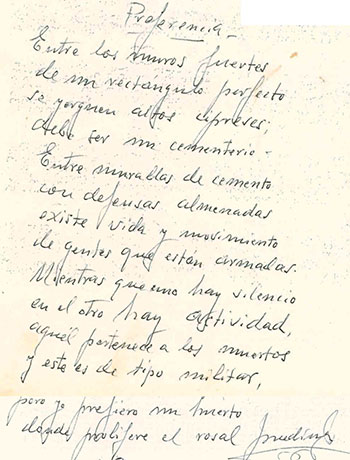 Preferencia -
Entre los muros fuertes
de un rectángulo perfecto
se yerguen altos cipreses;
debe ser un cementerio.
Entre murallas de cemento
con defensas almenadas
existe vida y movimiento
de gentes que están armadas.
Mientras que uno hay silencio
en el otro hay actividad,
aquél pertenece a los muertos
y este es de tipo militar,
pero yo prefiero un huerto
donde prolifere el rosal